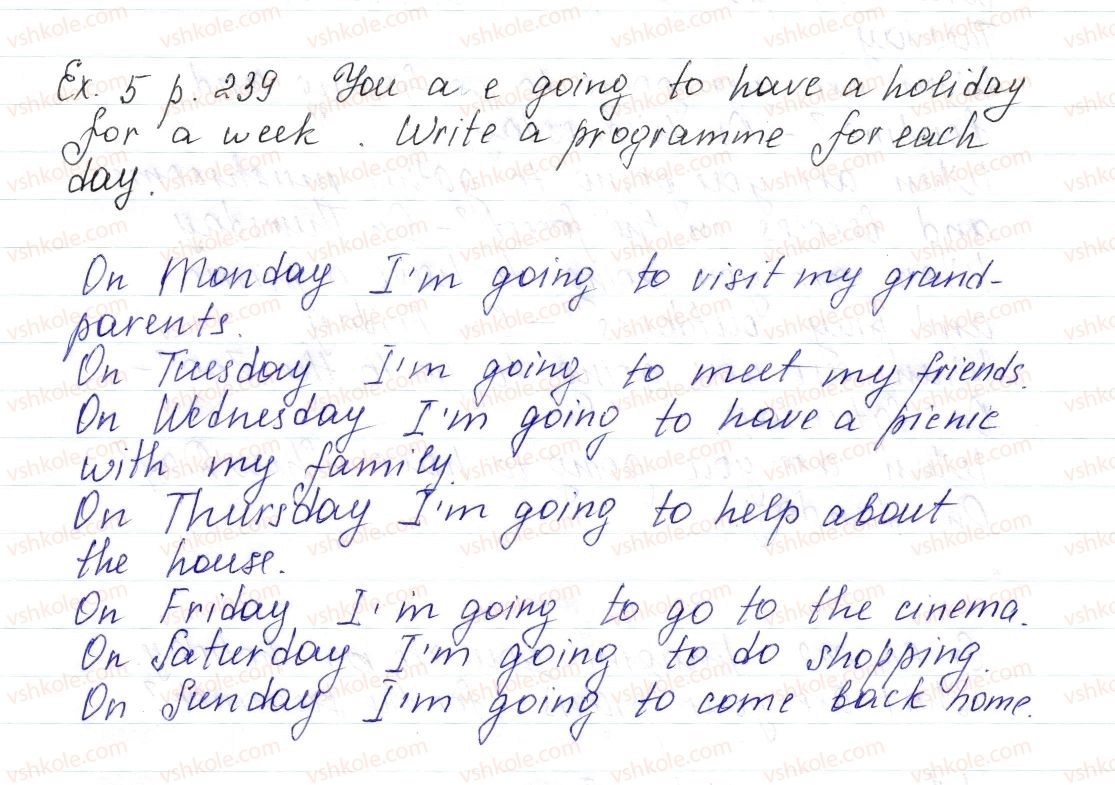 Ex. 5 p. 239 You a e going to have a holiday
for a week . Write a programme for each
day.
On Monday I'm going to visit my grand-
parents.
On Tuesday I'm going to meet my friends.
On Wednesday I'm going to have a picnic
with my family.
On Thursday I'm going to help about
the house.
On Friday I'm going to go to the cinema.
On Saturday I'm going to do shopping.
On Sunday I'm going to come back home.
vshkole.com